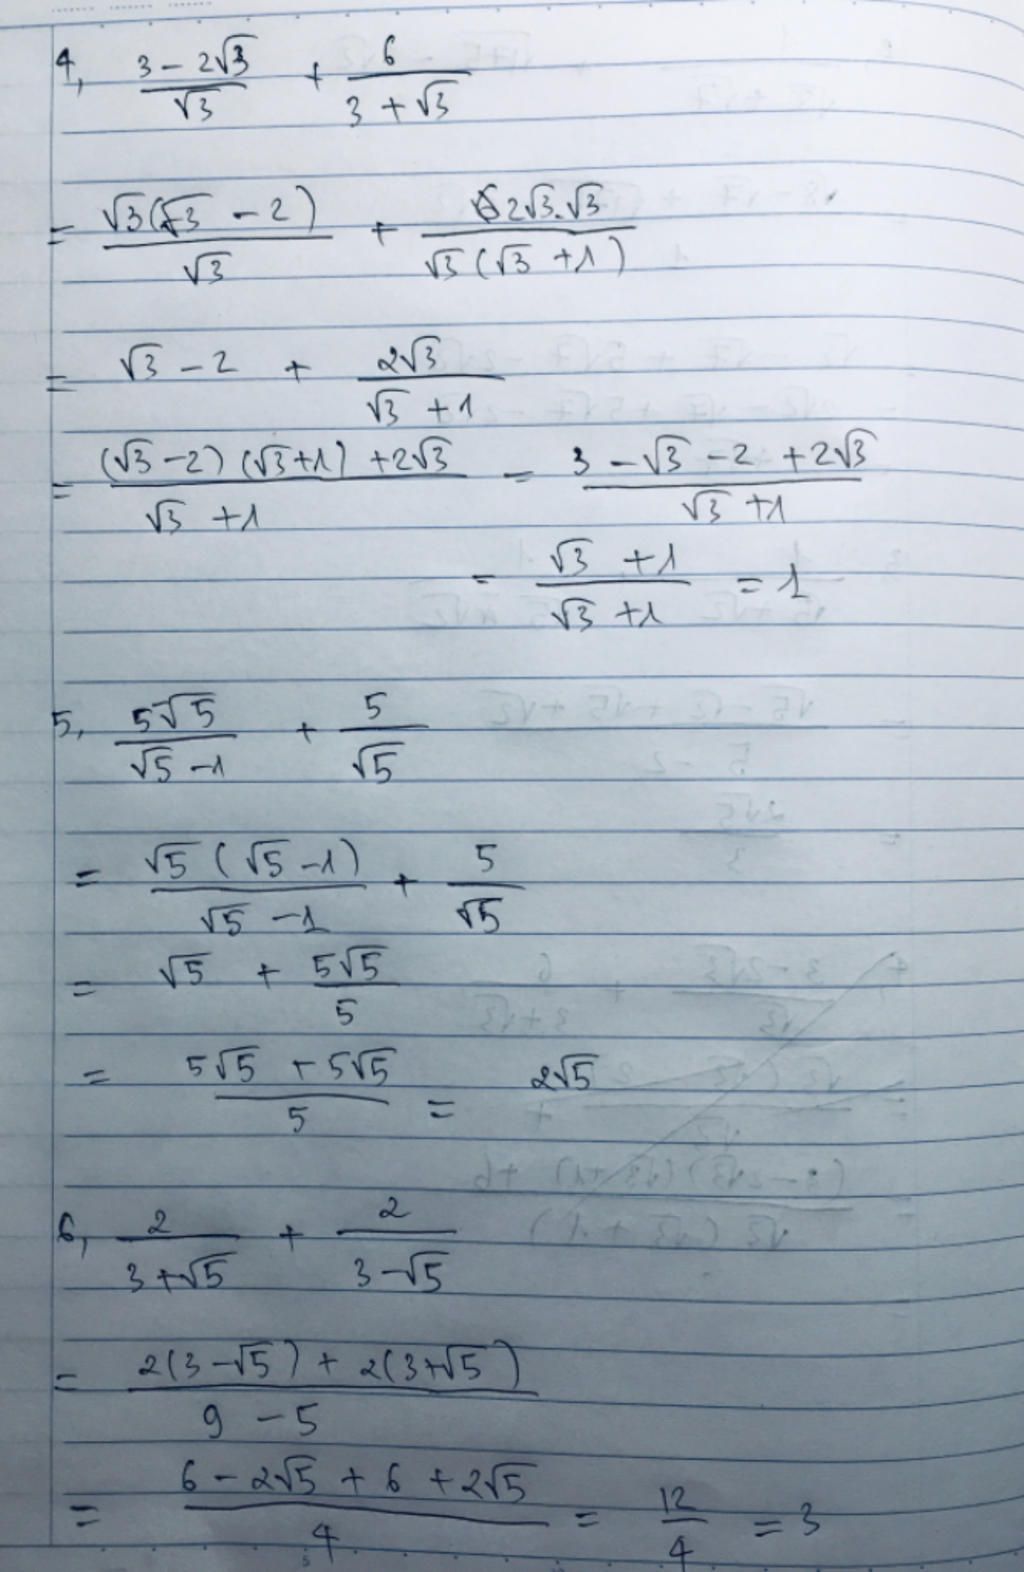 4, (3 - 2√3)/√3 + 6/(3 + √3)
= √3(√3 - 2)/√3 + 2√3.√3/(√3(√3 + 1))
= √3 - 2 + 2√3/(√3 + 1)
= ((√3 - 2)(√3 + 1) + 2√3)/(√3 + 1) = (3 - √3 - 2 + 2√3)/(√3 + 1)
= (√3 + 1)/(√3 + 1) = 1
5, 5√5/(√5 - 1) + 5/√5
= √5(√5 - 1)/(√5 - 1) + 5/√5
= √5 + 5√5/5
= (5√5 + 5√5)/5 = 2√5
6, 2/(3 + √5) + 2/(3 - √5)
= (2(3 - √5) + 2(3 + √5))/(9 - 5)
= (6 - 2√5 + 6 + 2√5)/4 = 12/4 = 3